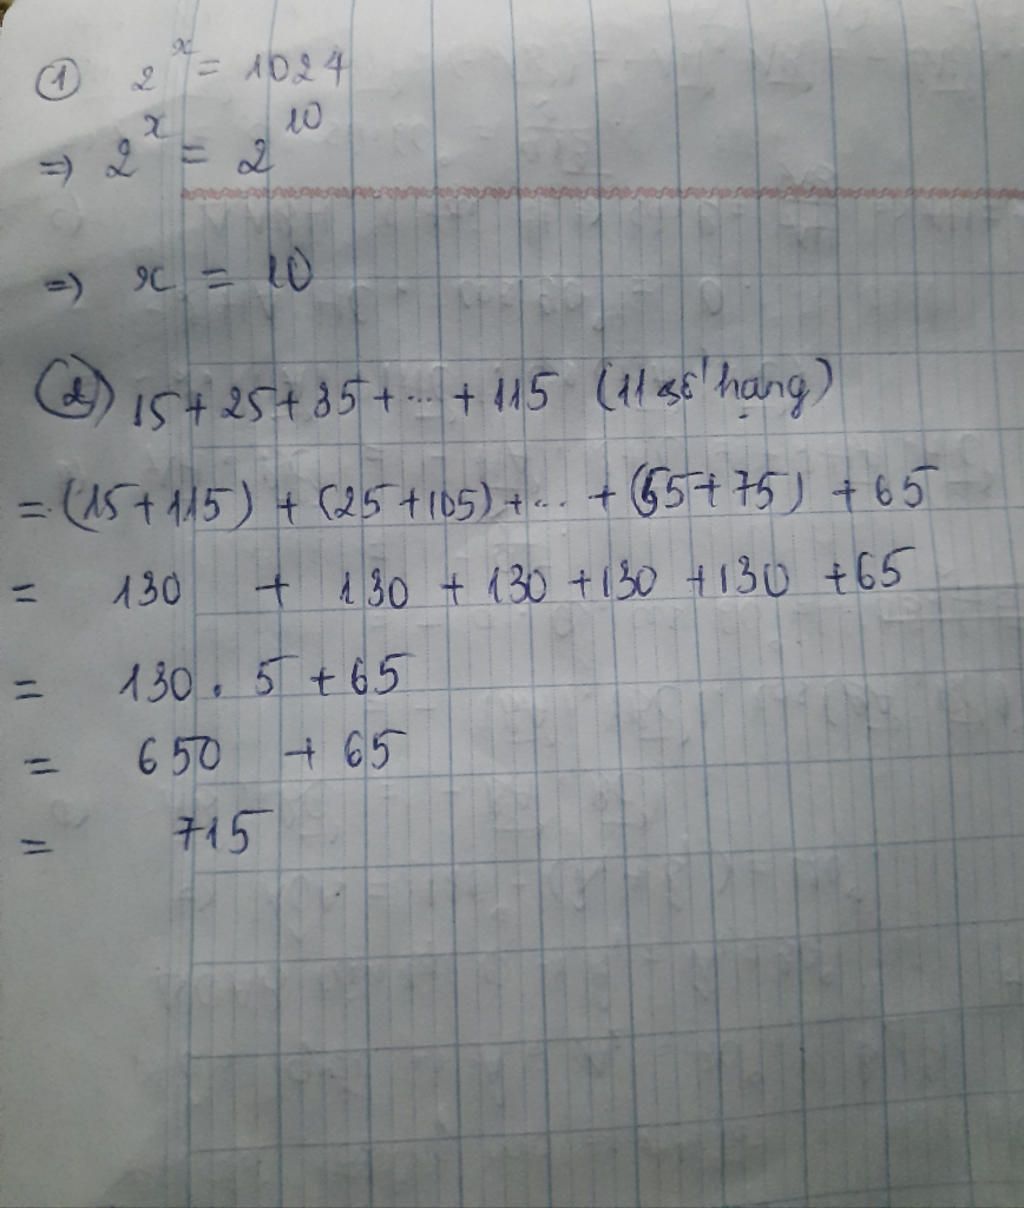 ① 2^x = 1024
⇒ 2^x = 2^10
⇒ x = 10
② 15 + 25 + 35 + ... + 115 (11 số hạng)
= (15 + 115) + (25 + 105) + ... + (55 + 75) + 65
= 130 + 130 + 130 + 130 + 130 + 65
= 130 . 5 + 65
= 650 + 65
= 715